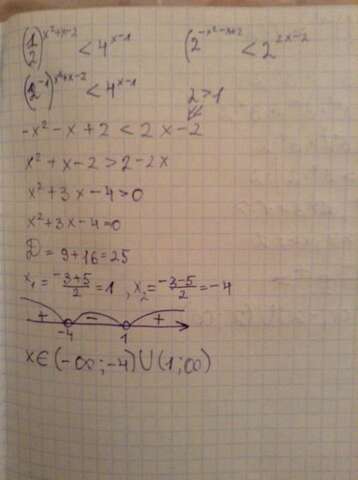 (1/2)^(x²+x-2) < 4^(x-1)
(2^(-x²-x+2) < 2^(2x-2)
(2^(-1))^(x²+x-2) < 4^(x-1)
2>1
-x²-x+2 < 2x-2
x²+x-2>2-2x
x²+3x-4>0
x²+3x-4=0
D=9+16=25
x₁=(-3+5)/2=1, x₂=(-3-5)/2=-4
+ - +
-4 1
x∈(-∞;-4)∪(1;∞)